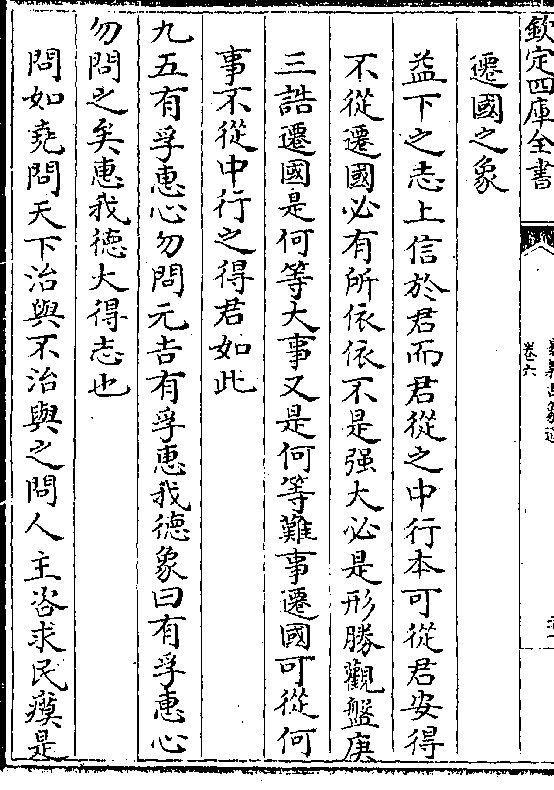 欽定四庫全書
卷六
遷國之象
益下之志上信於君而君從之中行本可從君安得
不從遷國必有所依依不是强大必是形勝觀盤庚
三誥遷國是何等大事又是何等難事遷國可從何
事不從中行之得君如此
九五有孚惠心勿問元吉有孚惠我德象曰有孚惠心
勿問之矣惠我德大得志也
問如堯問天下治與不治與之問人主咨求民瘼是